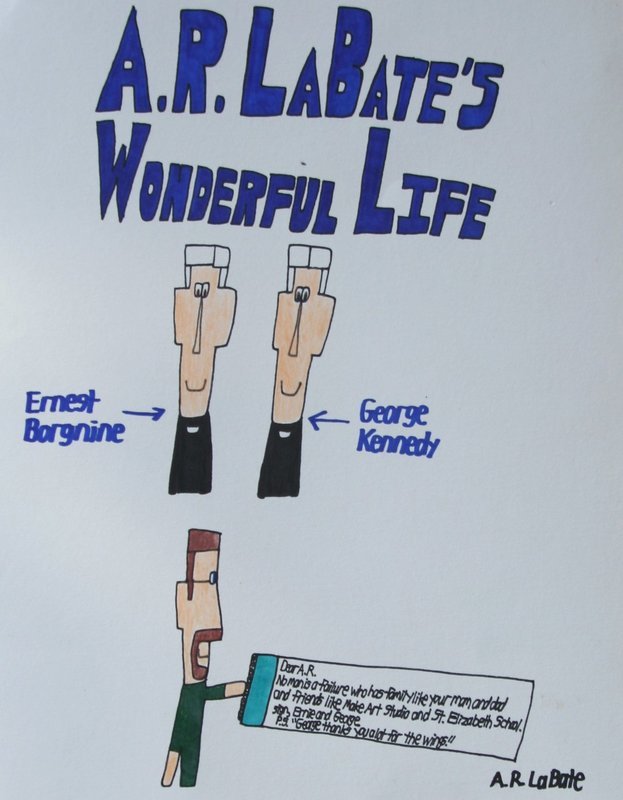 A.R. LABATE'S
WONDERFUL LIFE
Ernest
Borgnine
George
Kennedy
Dear A.R.
No man is a failure who has family like your mom and dad
and friends like Make Art Studio and St. Elizabeth School.
sign, Ernie and George
P.S. "George thanks you alot for the wings."
A.R. LaBate